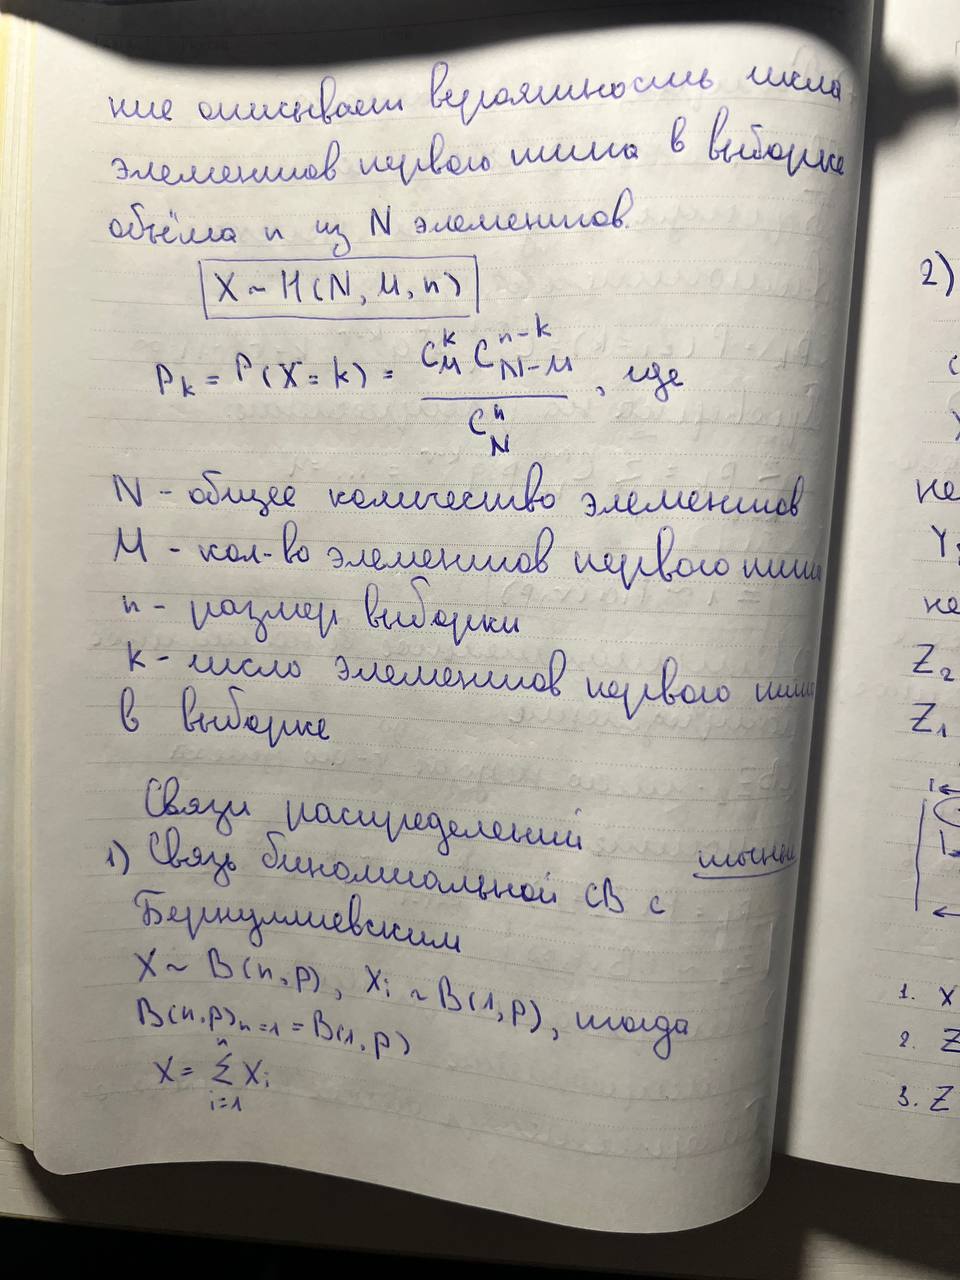 ние описывает вероятность числа
элементов первого типа в выборке
объёма n из N элементов.
X ~ H(N, M, n)
P_k = P(X = k) = \frac{C_M^k C_{N-M}^{n-k}}{C_N^n}, где
N - общее количество элементов
M - кол-во элементов первого типа
n - размер выборки
k - число элементов первого типа
в выборке
Связи распределений
1) Связь биномиальной СВ с
Бернуллиевским
X ~ B(n, p), X_i ~ B(1, p), тогда
B(n, p)_{n=1} = B(1, p)
X = \sum_{i=1}^{n} X_i
2)
Z_2
Z_1
1. X
2. Z
3. Z